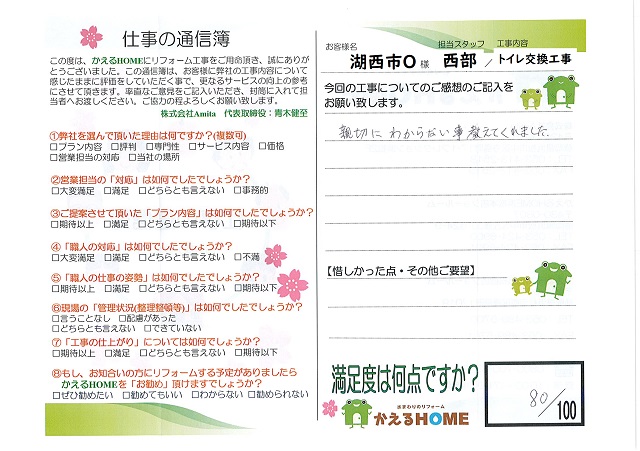 仕事の通信簿
この度は、かえるHOMEにリフォーム工事をご用命頂き、誠にありが
とうございました。この通信簿は、お客様に弊社の工事内容について
感じたままに評価をしていただく事で、更なるサービスの向上の参考
にさせて頂きます。率直なご意見をご記入いただき、封筒に入れて担
当者へお渡しください。ご協力の程よろしくお願い致します。
株式会社Amita 代表取締役：青木健至
①弊社を選んで頂いた理由は何ですか？(複数可)
□プラン内容 □評判 □専門性 □サービス内容 □価格
□営業担当の対応 □当社の場所
②営業担当の「対応」は如何でしたでしょうか？
□大変満足 □満足 □どちらとも言えない □事務的
③ご提案させて頂いた「プラン内容」は如何でしたでしょうか？
□期待以上 □満足 □どちらとも言えない □期待以下
④「職人の対応」は如何でしたでしょうか？
□大変満足 □満足 □どちらとも言えない □不満
⑤「職人の仕事の姿勢」は如何でしたでしょうか？
□期待以上 □満足 □どちらとも言えない □期待以下
⑥現場の「管理状況(整理整頓等)」は如何でしたでしょうか？
□言うことなし □配慮があった
□どちらとも言えない □できていない
⑦「工事の仕上がり」については如何でしょうか？
□期待以上 □満足 □どちらとも言えない □期待以下
⑧もし、お知合いの方にリフォームする予定がありましたら
かえるHOMEを「お勧め」頂けますでしょうか？
□ぜひ勧めたい □勧めてもいい □わからない □勧められない
お客様名 担当スタッフ 工事内容
湖西市O様 西部 / トイレ交換工事
今回の工事についてのご感想のご記入を
お願い致します。
親切にわからない事教えてくれました
【惜しかった点・その他ご要望】
満足度は何点ですか？
80/100
水まわりのリフォーム
かえるHOME